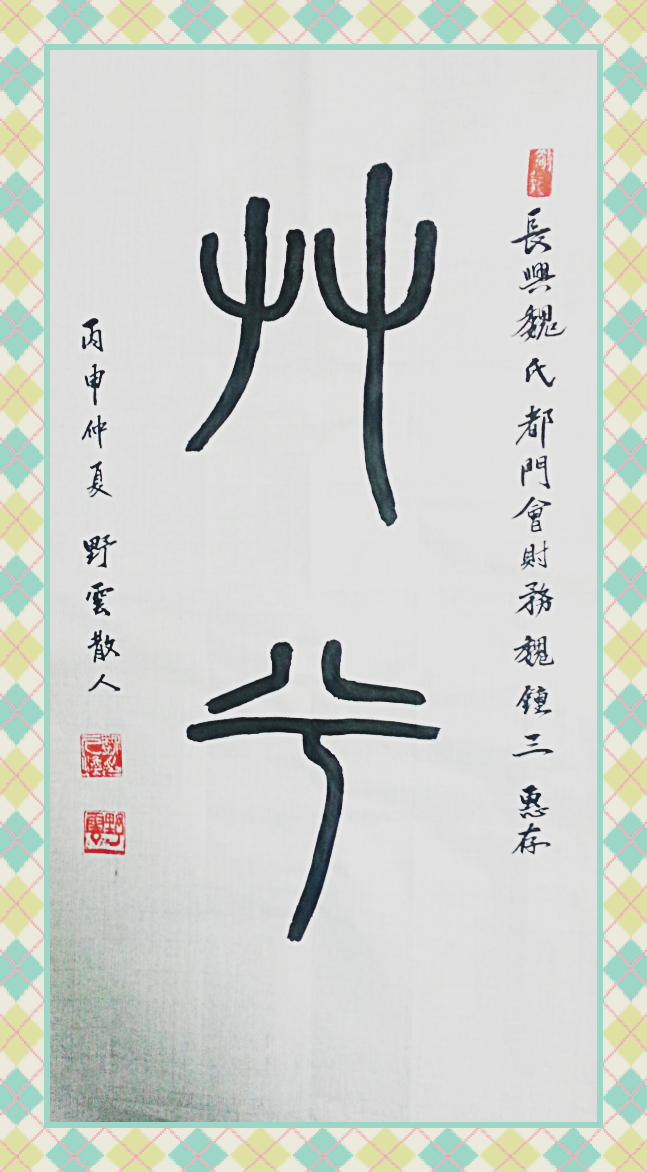 長興魏氏都門會財務魏鍾三 惠存
艸兮
丙申仲夏 野雲散人
野雲